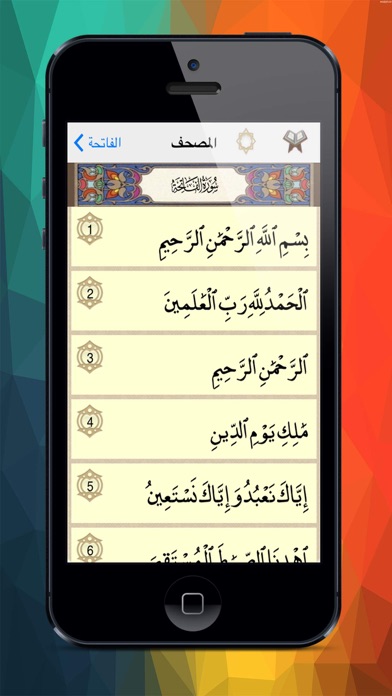 الفاتحة المصحف
سُورَةُ الفَاتِحَة
1 بِسْمِ ٱللَّهِ ٱلرَّحْمَٰنِ ٱلرَّحِيمِ
2 ٱلْحَمْدُ لِلَّهِ رَبِّ ٱلْعَٰلَمِينَ
3 ٱلرَّحْمَٰنِ ٱلرَّحِيمِ
4 مَٰلِكِ يَوْمِ ٱلدِّينِ
5 إِيَّاكَ نَعْبُدُ وَإِيَّاكَ نَسْتَعِينُ
6 ٱهْدِنَا ٱلصِّرَٰطَ ٱلْمُسْتَقِيمَ